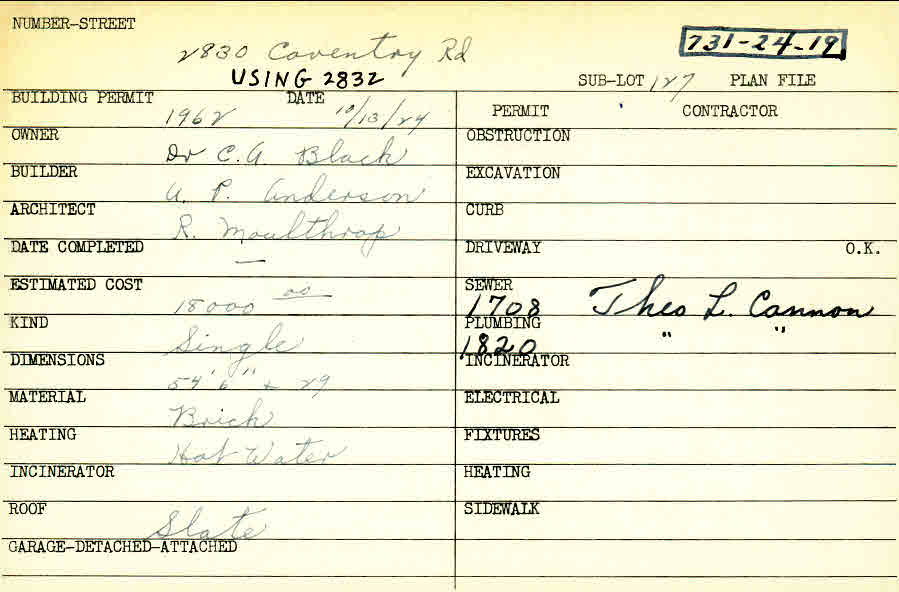 NUMBER-STREET
2830 Coventry Rd
731-24-19
USING 2832
SUB-LOT 127 PLAN FILE
BUILDING PERMIT 1962 DATE 10/13/24
PERMIT CONTRACTOR
OWNER Dr C.A. Black
OBSTRUCTION
BUILDER A. P. Anderson
EXCAVATION
ARCHITECT R. Moulthrop
CURB
DATE COMPLETED —
DRIVEWAY O.K.
ESTIMATED COST 18000 00
SEWER 1708 Theo L. Cannon
KIND Single
PLUMBING 1820 " "
DIMENSIONS 54'6" x 29
INCINERATOR
MATERIAL Brick
ELECTRICAL
HEATING Hot Water
FIXTURES
INCINERATOR
HEATING
ROOF Slate
SIDEWALK
GARAGE-DETACHED-ATTACHED